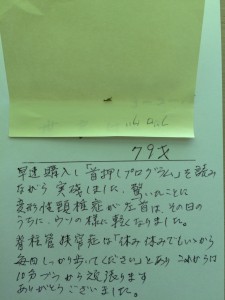 79才
早速購入し「首押しプログラム」を読み
ながら実践しました、驚いたことに
変形性頚椎症が左首は、その日の
うちに、ウソの様に軽くなりました。
脊柱管狭窄症は「休み休みでもいいから
毎日しっかり歩いてください」とあり これからは
10分づつから頑張ります
ありがとうございました。